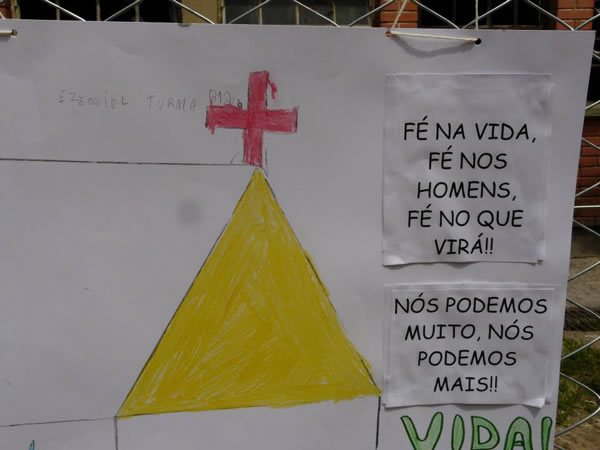 EZEQUIEL TURMA B12
FÉ NA VIDA,
FÉ NOS
HOMENS,
FÉ NO QUE
VIRÁ!!
NÓS PODEMOS
MUITO, NÓS
PODEMOS
MAIS!!
VIDA!